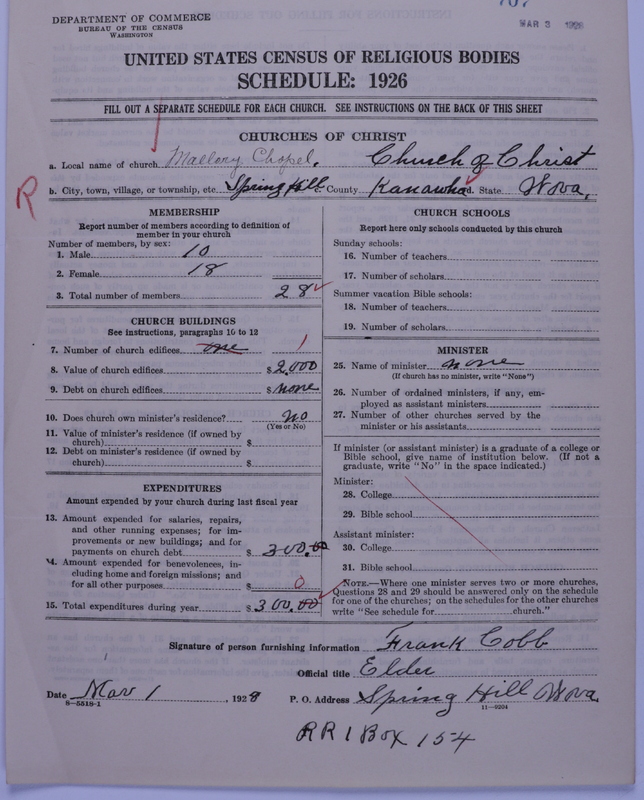 707
MAR 3 1928
DEPARTMENT OF COMMERCE
BUREAU OF THE CENSUS
WASHINGTON
UNITED STATES CENSUS OF RELIGIOUS BODIES
SCHEDULE: 1926
FILL OUT A SEPARATE SCHEDULE FOR EACH CHURCH. SEE INSTRUCTIONS ON THE BACK OF THIS SHEET
CHURCHES OF CHRIST
a. Local name of church Mallory Chapel. Church of Christ
R
b. City, town, village, or township, etc. Spring Hill c. County Kanawha d. State Wva.
MEMBERSHIP
Report number of members according to definition of
member in your church
Number of members, by sex:
1. Male 10
2. Female 18
3. Total number of members 28
CHURCH BUILDINGS
See instructions, paragraphs 10 to 12
7. Number of church edifices one 1
8. Value of church edifices $ 2,000
9. Debt on church edifices $ none
10. Does church own minister's residence? no
(Yes or No)
11. Value of minister's residence (if owned by
church) $
12. Debt on minister's residence (if owned by
church) $
EXPENDITURES
Amount expended by your church during last fiscal year
13. Amount expended for salaries, repairs,
and other running expenses; for im-
provements or new buildings; and for
payments on church debt $ 300.00
14. Amount expended for benevolences, in-
cluding home and foreign missions; and
for all other purposes $ 0
15. Total expenditures during year $ 300.00
CHURCH SCHOOLS
Report here only schools conducted by this church
Sunday schools:
16. Number of teachers
17. Number of scholars
Summer vacation Bible schools:
18. Number of teachers
19. Number of scholars
MINISTER
25. Name of minister none
(If church has no minister, write "None")
26. Number of ordained ministers, if any, em-
ployed as assistant ministers
27. Number of other churches served by the
minister or his assistants
If minister (or assistant minister) is a graduate of a college or
Bible school, give name of institution below. (If not a
graduate, write "No" in the space indicated.)
Minister:
28. College
29. Bible school
Assistant minister:
30. College
31. Bible school
NOTE.—Where one minister serves two or more churches,
Questions 28 and 29 should be answered only on the schedule
for one of the churches; on the schedules for the other churches
write "See schedule for church."
Signature of person furnishing information Frank Cobb
Official title Elder
Date Mar 1, 1928 P. O. Address Spring Hill Wva.
8—5518-1 11—9204
RR 1 Box 154